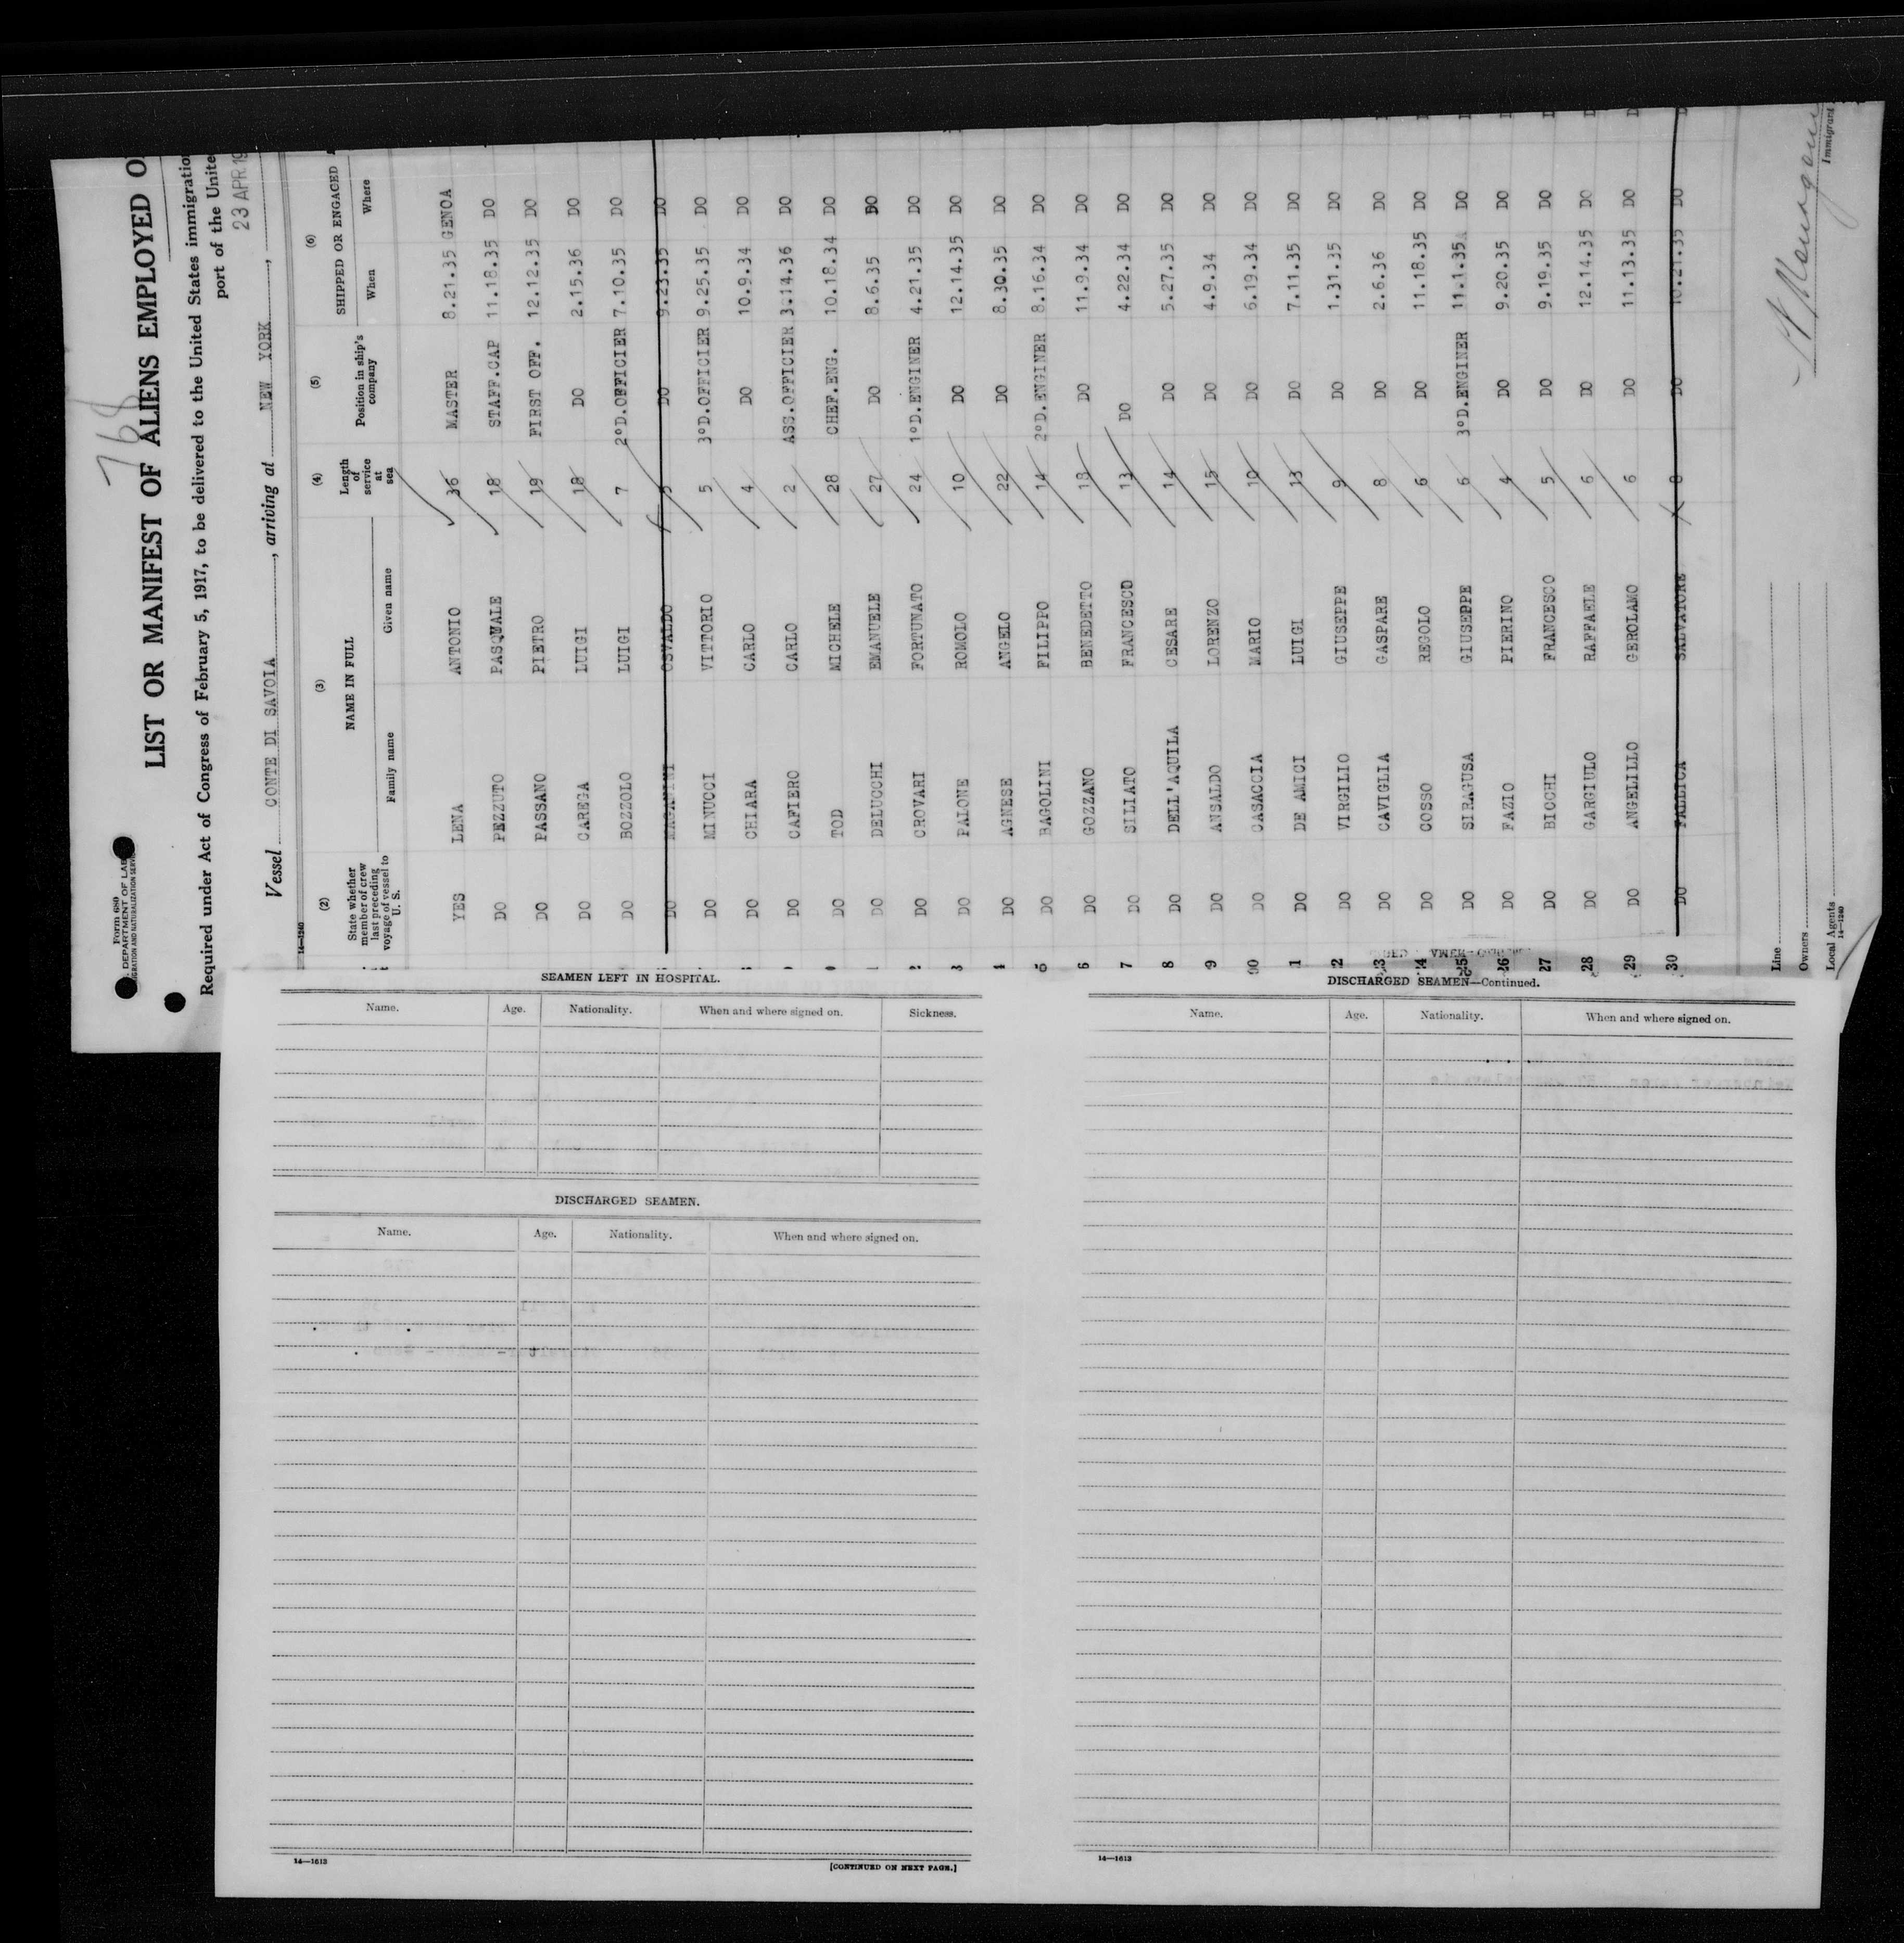 768
Form 680
DEPARTMENT OF LAB
IMMIGRATION AND NATURALIZATION SERVICE
LIST OR MANIFEST OF ALIENS EMPLOYED O
Required under Act of Congress of February 5, 1917, to be delivered to the United States immigration
port of the Unite
Vessel CONTE DI SAVOIA, arriving at NEW YORK, 23 APR 19
14—1240
(2) (3) (4) (5) (6)
State whether member of crew last preceding voyage of vessel to U. S. NAME IN FULL Length of service at sea Position in ship's company SHIPPED OR ENGAGED
Family name Given name When Where
YES LENA ANTONIO 36 MASTER 8.21.35 GENOA
DO PEZZUTO PASQUALE 18 STAFF.CAP 11.18.35 DO
DO PASSANO PIETRO 19 FIRST OFF. 12.12.35 DO
DO CAREGA LUIGI 18 DO 2.15.36 DO
DO BOZZOLO LUIGI 7 2°D.OFFICIER 7.10.35 DO
DO MAGANINI OSVALDO 5 DO 9.23.35 DO
DO MINUCCI VITTORIO 5 3°D.OFFICIER 9.25.35 DO
DO CHIARA CARLO 4 DO 10.9.34 DO
DO CAFIERO CARLO 2 ASS.OFFICIER 3.14.36 DO
DO TOD MICHELE 28 CHEF.ENG. 10.18.34 DO
DO DELUCCHI EMANUELE 27 DO 8.6.35 DO
DO CROVARI FORTUNATO 24 1°D.ENGINER 4.21.35 DO
DO PALONE ROMOLO 10 DO 12.14.35 DO
DO AGNESE ANGELO 22 DO 8.30.35 DO
DO BAGOLINI FILIPPO 14 2°D.ENGINER 8.16.34 DO
6 DO GOZZANO BENEDETTO 18 DO 11.9.34 DO
7 DO SILIATO FRANCESCO 13 DO 4.22.34 DO
8 DO DELL'AQUILA CESARE 14 DO 5.27.35 DO
9 DO ANSALDO LORENZO 15 DO 4.9.34 DO
DO CASACCIA MARIO 10 DO 6.19.34 DO
1 DO DE AMICI LUIGI 13 DO 7.11.35 DO
2 DO VIRGILIO GIUSEPPE 9 DO 1.31.35 DO
23 DO CAVIGLIA GASPARE 8 DO 2.6.36 DO
24 DO COSSO REGOLO 6 DO 11.18.35 DO
25 DO SIRAGUSA GIUSEPPE 6 3°D.ENGINER 11.1.35 DO
26 DO FAZIO PIERINO 4 DO 9.20.35 DO
27 DO BICCHI FRANCESCO 5 DO 9.19.35 DO
28 DO GARGIULO RAFFAELE 6 DO 12.14.35 DO
29 DO ANGELILLO GEROLAMO 6 DO 11.13.35 DO
30 DO FALLICA SALVATORE 8 DO 10.21.35 DO
Line
Owners
Local Agents
14—1240
Immigrant
SEAMEN LEFT IN HOSPITAL.
Name. Age. Nationality. When and where signed on. Sickness.
DISCHARGED SEAMEN.
Name. Age. Nationality. When and where signed on.
14—1613
[CONTINUED ON NEXT PAGE.]
DISCHARGED SEAMEN—Continued.
Name. Age. Nationality. When and where signed on.
14—1613